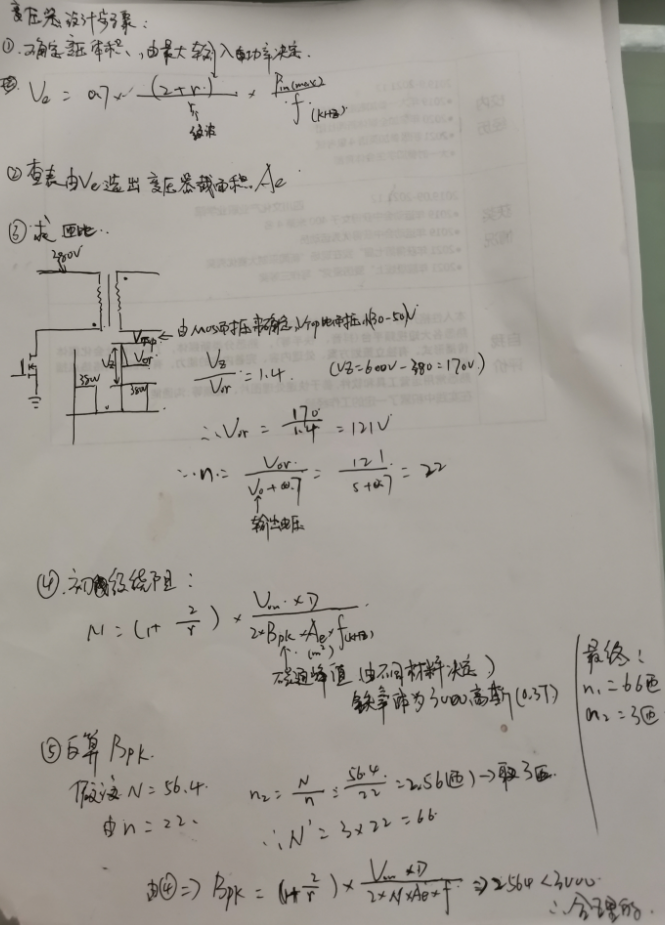 变压器设计步骤:
①. 确定变压体积、由最大输入功率决定.
Ve = 0.7 × (2+r)² / r × Pin(max) / f (KHz)
纹波
② 查表由Ve选出变压器截面积Ae
③ 求匝比..
380V
由MOS耐压来确定
(30-50)V
Vz
Vor
380V
380V
Vz / Vor = 1.4. (Vz=600V-380=170V.)
∴ Vor = 170 / 1.4 = 121V
∵ n = Vor / (Vo+0.7) = 121 / (5+0.7) = 22
输出电压
④. 初级绕阻:
N = (1+ 2/r) × Von × D / (2×Bpk×Ae×f(KHz))
(m²)
磁通峰值 (由不同材料决定)
为3000高斯(0.3T)
最终:
n₁=66匝
n₂=3匝
⑤ 反算Bpk.
假设N=56.4. n₂ = N/n = 56.4/22 = 2.56(匝) → 取3匝.
由n=22. ∴ N' = 3×22 = 66.
由④ => Bpk = (1+ 2/r) × Von × D / (2×N×Ae×f) => 2564<3000.
∴ 合理的.